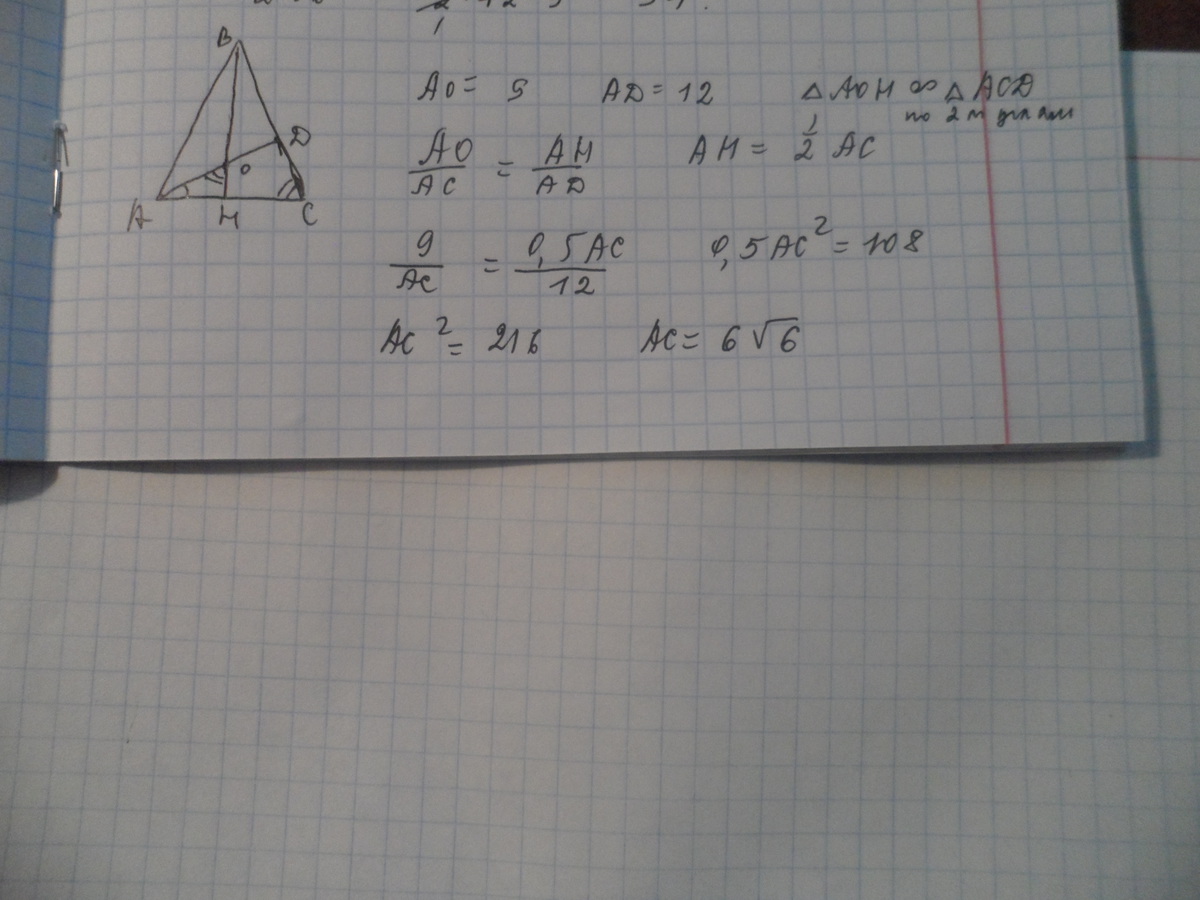 B
D
O
A H C
AO = 9 AD = 12 △ AOH ∞ △ ACD
по 2 м углам
AO/AC = AH/AD AH = 1/2 AC
9/AC = 0,5AC/12 0,5AC² = 108
AC² = 216 AC = 6√6